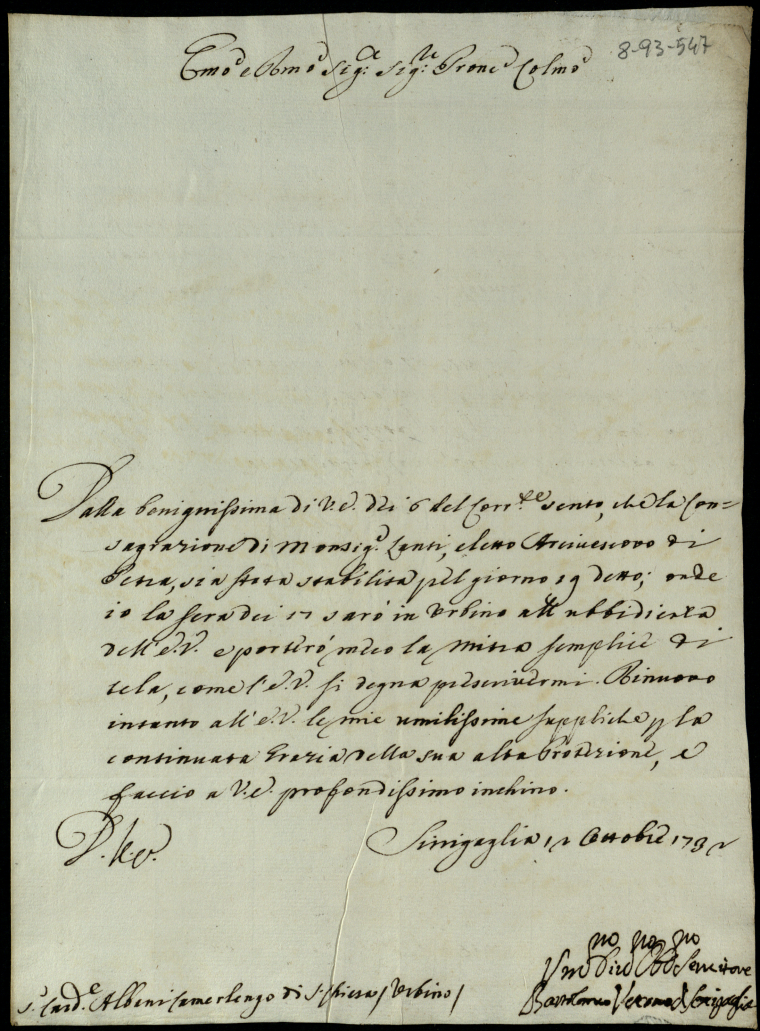 8-93-547
Emo e Rmo Sig.r Sig.r Prone Colmo
Dalla benignissima di V.E. dei 6 del Corr.te sento, che la Con=
sagrazione di Monsig.r Lanti, eletto Arcivescovo di
Petra, sia stata stabilita p[e]l giorno 19 detto; onde
io la sera dei 17 sarò in Urbino all'ubbidienza
dell'E.V. e porterò meco la Mitra semplice di
tela, come l'E.V. si degna prescrivermi. Rinuovo
intanto all'E.V. le mie umilissime suppliche p la
continuata Grazia della sua alta Protezione, e
faccio a V.E. profondissimo inchino.
D. V. E. Sinigaglia 12 Ottobre 1732
Um.mo Div.mo Obb.mo Servitore
S.r Card.e Albani Camerlengo di S. Chiesa / Urbino /
Bartolomeo Vescovo di Sinigaglia